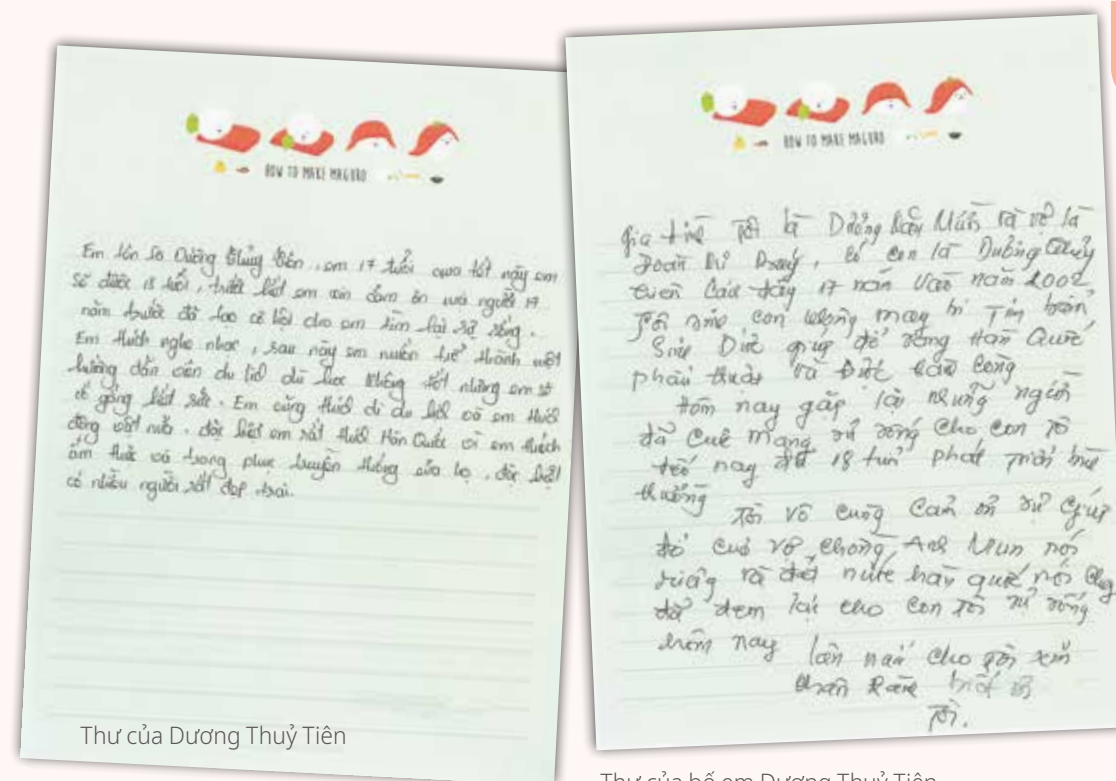 HOW TO MAKE MAGURO
Em tên là Dương Thủy Tiên, em 17 tuổi qua tết này em
sẽ được 18 tuổi, trước hết em xin cảm ơn mọi người 17
năm trước đã tạo cơ hội cho em tìm lại sự sống.
Em thích nghe nhạc, sau này em muốn trở thành một
hướng dẫn viên du lịch dù học không tốt nhưng em sẽ
cố gắng hết sức. Em cũng thích đi du lịch và em thích
động vật nữa. đặc biệt em rất thích Hàn Quốc vì em thích
ẩm thực và trang phục truyền thống của họ, đặc biệt
có nhiều người rất đẹp trai.
Thư của Dương Thuỷ Tiên
HOW TO MAKE MAGURO
gia đình tôi là Dương Văn và vợ là
Đoàn, có con là Dương Thủy
Tiên Cách đây 17 năm Vào năm 2002
con không may bị Tim bẩm
Sinh Được giúp đỡ sang Hàn Quốc
phẫu thuật và thành công
Hôm nay gặp lại những người
đã mang sự sống cho con tôi
đến nay đã 18 tuổi phát triển bình
thường
Tôi vô cùng cảm ơn sự giúp
đỡ của vợ chồng Anh Mun nói
riêng và đất nước hàn quốc nói chung
đã đem lại cho con tôi sự sống
hôm nay
lần nữa cho tôi xin
chân thành biết ơn
Tôi.
Thư của bố em Dương Thuỷ Tiên